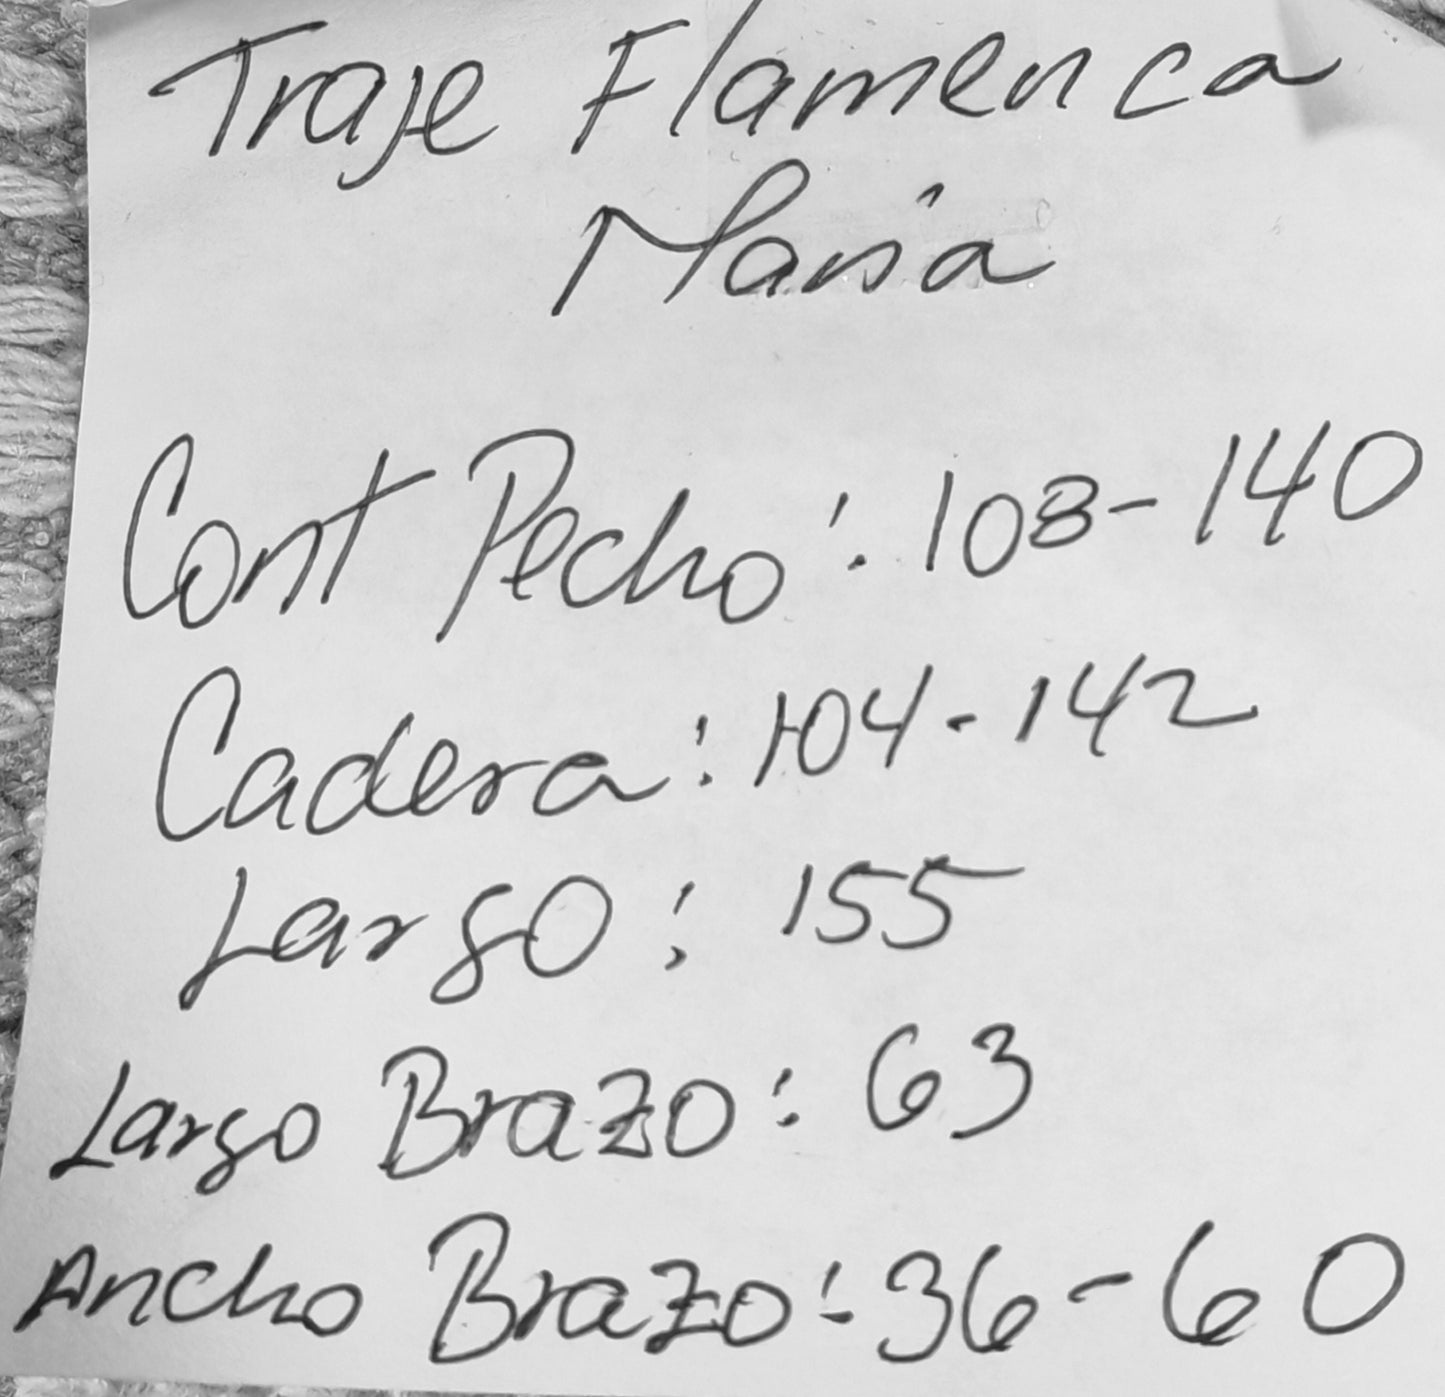 Traje Flamenca
María
Cont Pecho: 108-140
Cadera: 104-142
Largo: 155
Largo Brazo: 63
Ancho Brazo: 36-60